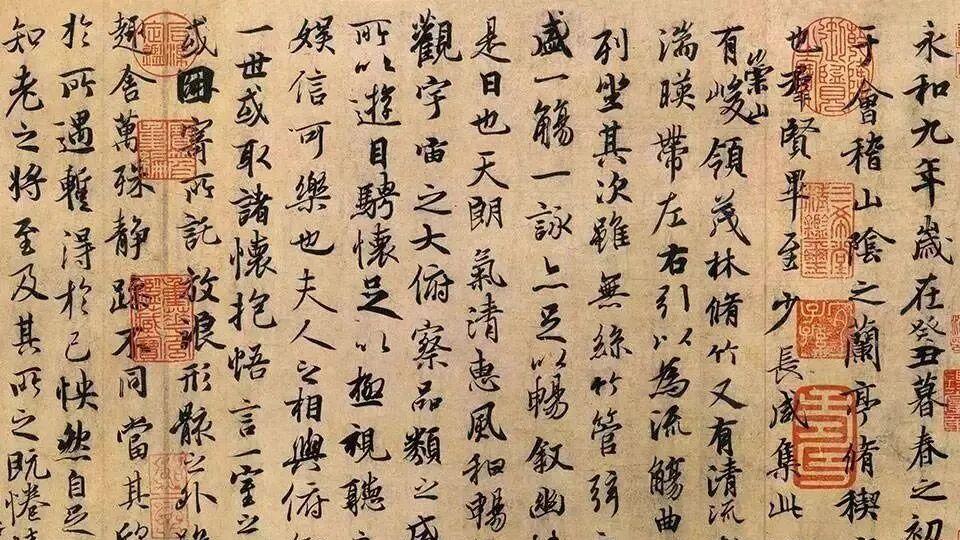 永和九年歲在癸丑暮春之初
于會稽山陰之蘭亭脩稧
也羣賢畢至少長咸集此
有崇山峻領茂林脩竹又有清流
湍暎帶左右引以為流觴曲
列坐其次雖無絲竹管弦
盛一觴一詠亦足以暢敘幽
是日也天朗氣清惠風和暢
觀宇宙之大俯察品類之盛
所以遊目騁懷足以極視聽
娛信可樂也夫人之相與俯
一世或取諸懷抱悟言一室之
或因寄所託放浪形骸之外
趣舍萬殊静躁不同當其
於所遇蹔得於己怏然自足
知老之將至及其所之既惓